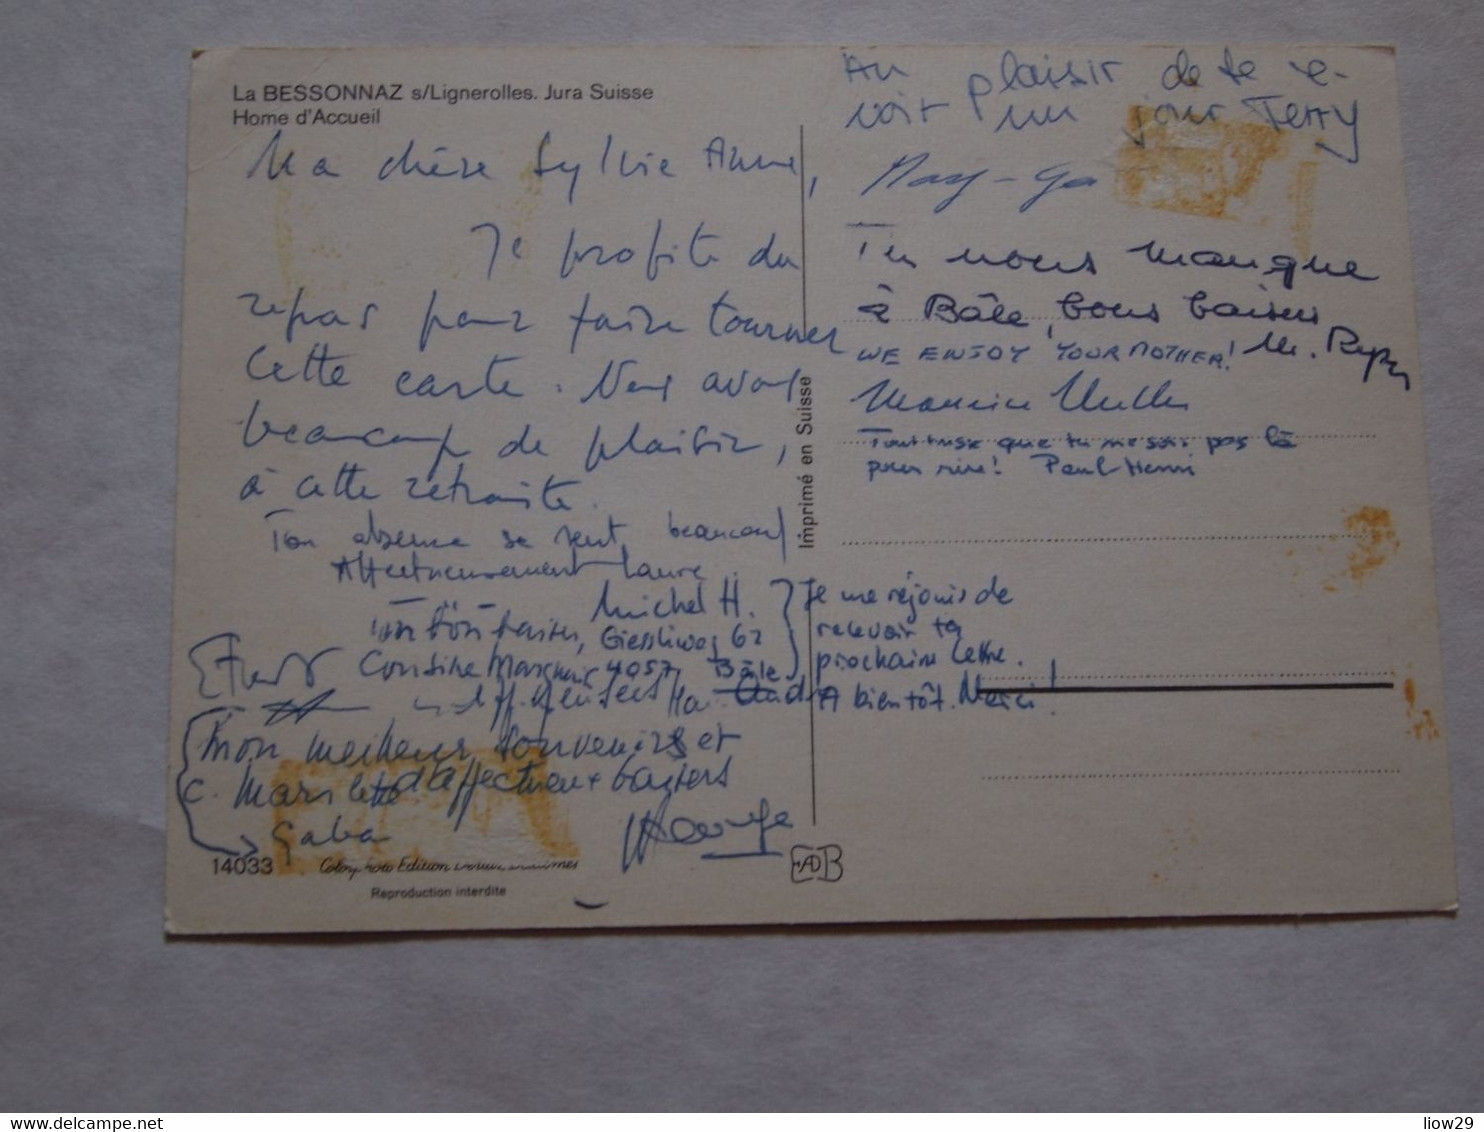 La BESSONNAZ s/Lignerolles. Jura Suisse
Home d'Accueil
Ma chère Sylvie Anne,
Je profite du
repas pour faire tourner
cette carte. Nous avons
beaucoup de plaisir,
à cette retraite.
Ton absence se sent beaucoup
Affectueusement Laure
Michel H.
Giessliweg 62
Cousine 4057 Bâle
Je me réjouis de
recevoir ta
prochaine lettre.
A bientôt. Merci!
mon meilleur souvenirs et
d'affectueux baisers
C. Marilette
Gaba
14033
Reproduction interdite
Imprimé en Suisse
Au plaisir de te re-
voir un jour Terry
May-Ga
Tu nous manque
à Bâle, bons baisers
WE ENJOY YOUR MOTHER! M.
Maurice Muller
que tu ne sois pas là
pour rire! Paul-Henri
liow29